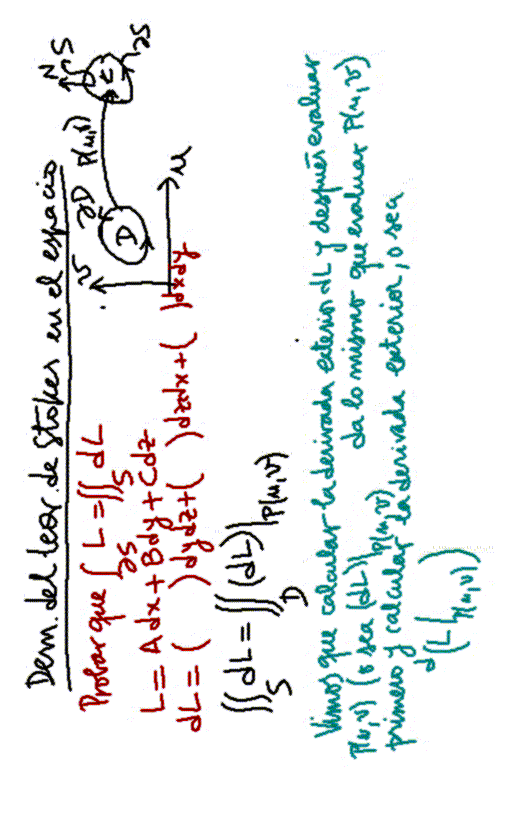 Dem. del teor. de Stokes en el espacio
Probar que ∫∂S L = ∬S dL
L = A dx + B dy + C dz
dL = ( ) dy dz + ( ) dz dx + ( ) dx dy
v
∂D
D
u
P(u,v)
N
S
∂S
∬S dL = ∬D (dL)|P(u,v)
Vimos que calcular la derivada exterior dL y después evaluar
P(u,v) (o sea (dL)|P(u,v) da lo mismo que evaluar P(u,v)
primero y calcular la derivada exterior, o sea
d(L|P(u,v))